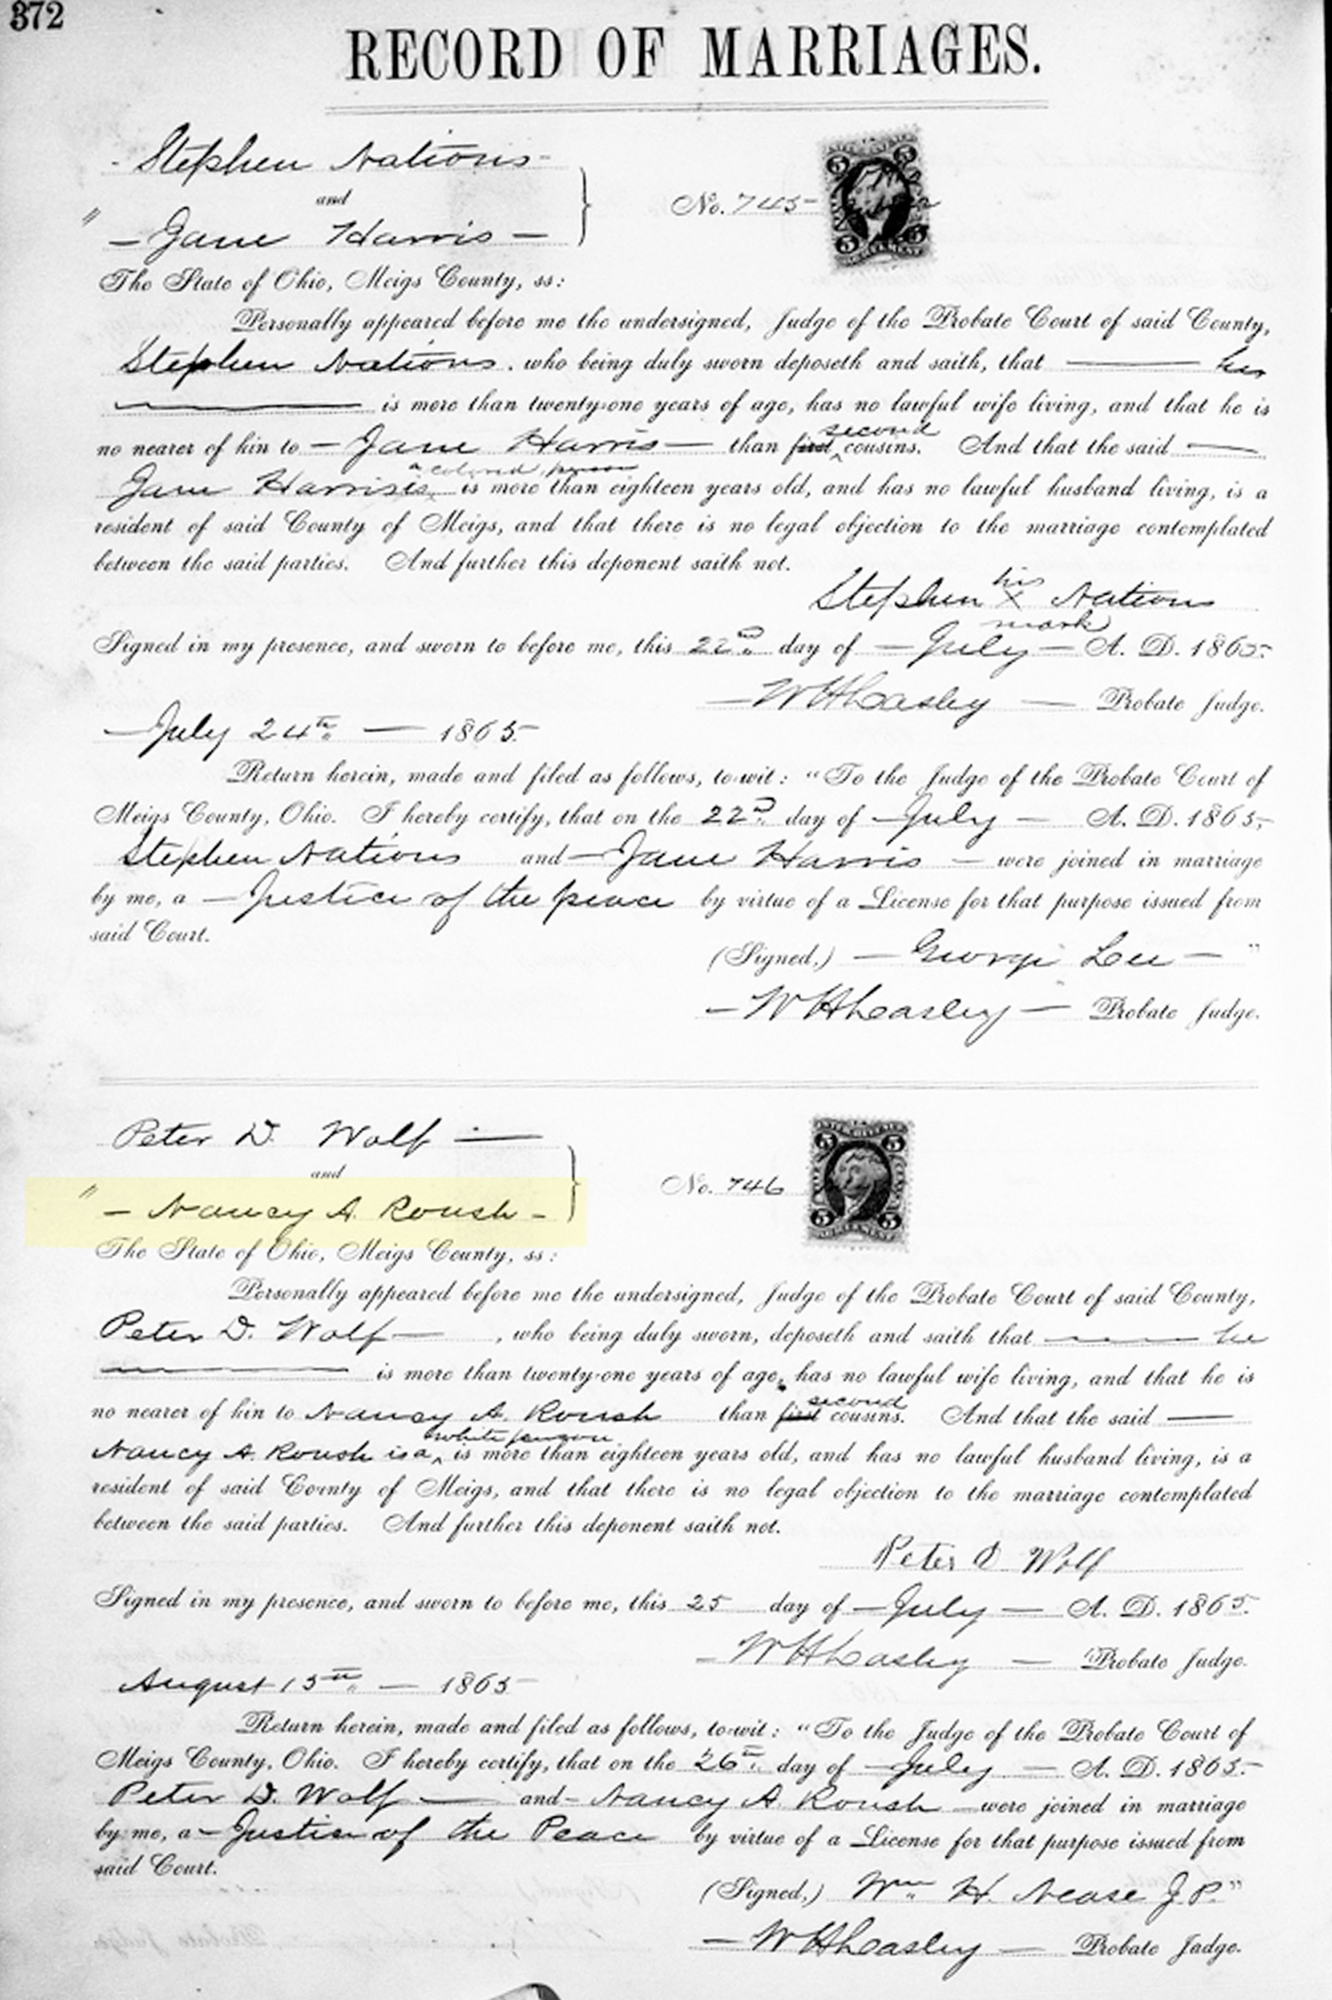 372
RECORD OF MARRIAGES.
- Stephen Nations -
and
" - Jane Harris -
No. 745-
The State of Ohio, Meigs County, ss:
Personally appeared before me the undersigned, Judge of the Probate Court of said County,
Stephen Nations, who being duly sworn deposeth and saith, that — he
— is more than twenty-one years of age, has no lawful wife living, and that he is
no nearer of kin to - Jane Harris - than first second cousins. And that the said —
Jane Harris is a colored person is more than eighteen years old, and has no lawful husband living, is a
resident of said County of Meigs, and that there is no legal objection to the marriage contemplated
between the said parties. And further this deponent saith not.
Stephen his X mark Nations
Signed in my presence, and sworn to before me, this 22nd day of - July - A. D. 1865.
- W H Lasley - Probate Judge.
- July 24th - 1865-
Return herein, made and filed as follows, to-wit: "To the Judge of the Probate Court of
Meigs County, Ohio. I hereby certify, that on the 22d day of - July - A. D. 1865,
Stephen Nations and - Jane Harris - were joined in marriage
by me, a - Justice of the peace by virtue of a License for that purpose issued from
said Court.
(Signed,) - George Lee - "
- W H Lasley - Probate Judge.
Peter D. Wolf —
and
" - Nancy A. Roush -
No. 746
The State of Ohio, Meigs County, ss:
Personally appeared before me the undersigned, Judge of the Probate Court of said County,
Peter D. Wolf - , who being duly sworn, deposeth and saith that — he
— is more than twenty-one years of age, has no lawful wife living, and that he is
no nearer of kin to Nancy A. Roush than first second cousins. And that the said —
Nancy A. Roush is a white person is more than eighteen years old, and has no lawful husband living, is a
resident of said County of Meigs, and that there is no legal objection to the marriage contemplated
between the said parties. And further this deponent saith not.
Peter D Wolf
Signed in my presence, and sworn to before me, this 25 day of - July - A. D. 1865.
- W H Lasley - Probate Judge.
August 15th - 1865-
Return herein, made and filed as follows, to-wit: "To the Judge of the Probate Court of
Meigs County, Ohio. I hereby certify, that on the 26th day of - July - A. D. 1865.-
Peter D. Wolf - and - Nancy A. Roush - were joined in marriage
by me, a - Justice of the Peace by virtue of a License for that purpose issued from
said Court.
(Signed,) Wm H. Nease J. P."
- W H Lasley - Probate Judge.